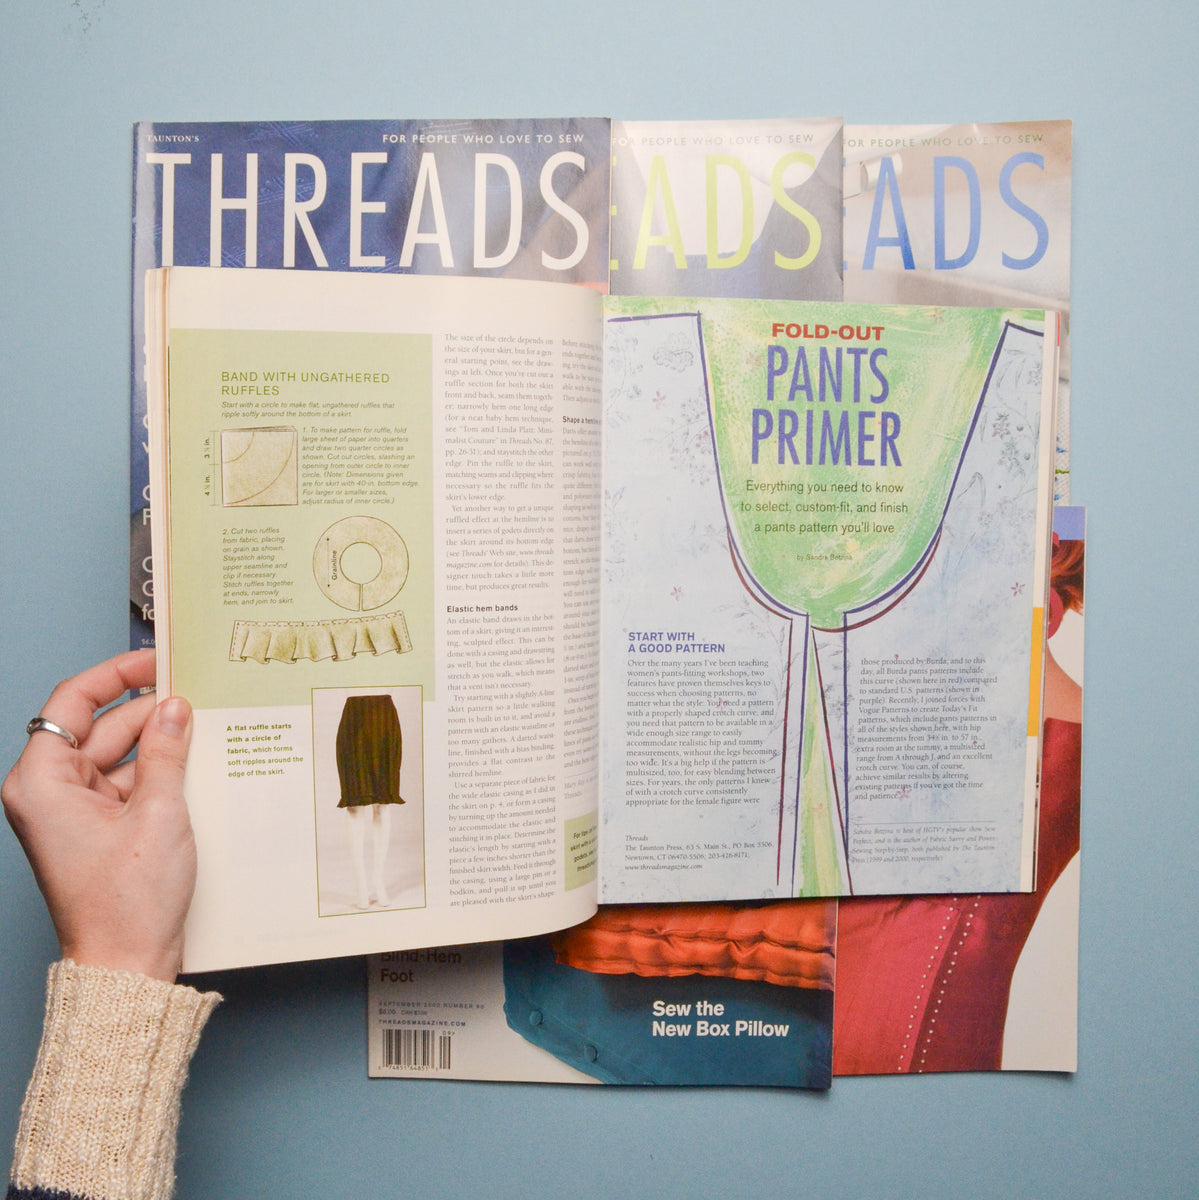 TAUNTON'S
FOR PEOPLE WHO LOVE TO SEW
THREADS
FOR PEOPLE WHO LOVE TO SEW
EADS
FOR PEOPLE WHO LOVE TO SEW
EADS
BAND WITH UNGATHERED
RUFFLES
Start with a circle to make flat, ungathered ruffles that
ripple softly around the bottom of a skirt.
3 ½ in.
4 ½ in.
1. To make pattern for ruffle, fold
large sheet of paper into quarters
and draw two quarter circles as
shown. Cut out circles, slashing an
opening from outer circle to inner
circle. (Note: Dimensions given
are for skirt with 40-in. bottom edge.
For larger or smaller sizes,
adjust radius of inner circle.)
2. Cut two ruffles
from fabric, placing
on grain as shown.
Staystitch along
upper seamline and
clip if necessary.
Stitch ruffles together
at ends, narrowly
hem, and join to skirt.
Grainline
A flat ruffle starts
with a circle of
fabric, which forms
soft ripples around the
edge of the skirt.
The size of the circle depends on
the size of your skirt, but for a gen-
eral starting point, see the draw-
ings at left. Once you've cut out a
ruffle section for both the skirt
front and back, seam them togeth-
er; narrowly hem one long edge
(for a neat baby hem technique,
see "Tom and Linda Platt: Mini-
malist Couture" in Threads No. 87,
pp. 26-31); and staystitch the other
edge. Pin the ruffle to the skirt,
matching seams and clipping where
necessary so the ruffle fits the
skirt's lower edge.
Yet another way to get a unique
ruffled effect at the hemline is to
insert a series of godets directly on
the skirt around its bottom edge
(see Threads' Web site, www.threads
magazine.com for details). This de-
signer touch takes a little more
time, but produces great results.
Elastic hem bands
An elastic band draws in the bot-
tom of a skirt, giving it an interest-
ing, sculpted effect. This can be
done with a casing and drawstring
as well, but the elastic allows for
stretch as you walk, which means
that a vent isn't necessary.
Try starting with a slightly A-line
skirt pattern so a little walking
room is built in to it, and avoid a
pattern with an elastic waistline or
too many gathers. A darted waist-
line, finished with a bias binding,
provides a flat contrast to the
shirred hemline.
Use a separate piece of fabric for
the wide elastic casing as I did in
the skirt on p. 4, or form a casing
by turning up the amount needed
to accommodate the elastic and
stitching it in place. Determine the
elastic's length by starting with a
piece a few inches shorter than the
finished skirt width. Feed it through
the casing, using a large pin or a
bodkin, and pull it up until you
are pleased with the skirt's shape.
FOLD-OUT
PANTS
PRIMER
Everything you need to know
to select, custom-fit, and finish
a pants pattern you'll love
by Sandra Betzina
START WITH
A GOOD PATTERN
Over the many years I've been teaching
women's pants-fitting workshops, two
features have proven themselves keys to
success when choosing patterns, no
matter what the style: You need a pattern
with a properly shaped crotch curve, and
you need that pattern to be available in a
wide enough size range to easily
accommodate realistic hip and tummy
measurements, without the legs becoming
too wide. It's a big help if the pattern is
multisized, too, for easy blending between
sizes. For years, the only patterns I knew
of with a crotch curve consistently
appropriate for the female figure were
those produced by Burda, and to this
day, all Burda pants patterns include
this curve (shown here in red) compared
to standard U.S. patterns (shown in
purple). Recently, I joined forces with
Vogue Patterns to create Today's Fit
patterns, which include pants patterns in
all of the styles shown here, with hip
measurements from 34½ in. to 57 in.,
extra room at the tummy, a multisized
range from A through J, and an excellent
crotch curve. You can, of course,
achieve similar results by altering
existing patterns if you've got the time
and patience.
Threads
The Taunton Press, 63 S. Main St., PO Box 5506,
Newtown, CT 06470-5506; 203-426-8171;
www.threadsmagazine.com
Sandra Betzina is host of HGTV's popular show Sew
Perfect, and is the author of Fabric Savvy and Power
Sewing Step-by-Step, both published by The Taunton
Press (1999 and 2000, respectively)
Blind-Hem
Foot
SEPTEMBER 2000 NUMBER 90
$6.00 CAN $7.00
THREADSMAGAZINE.COM
09>
Sew the
New Box Pillow